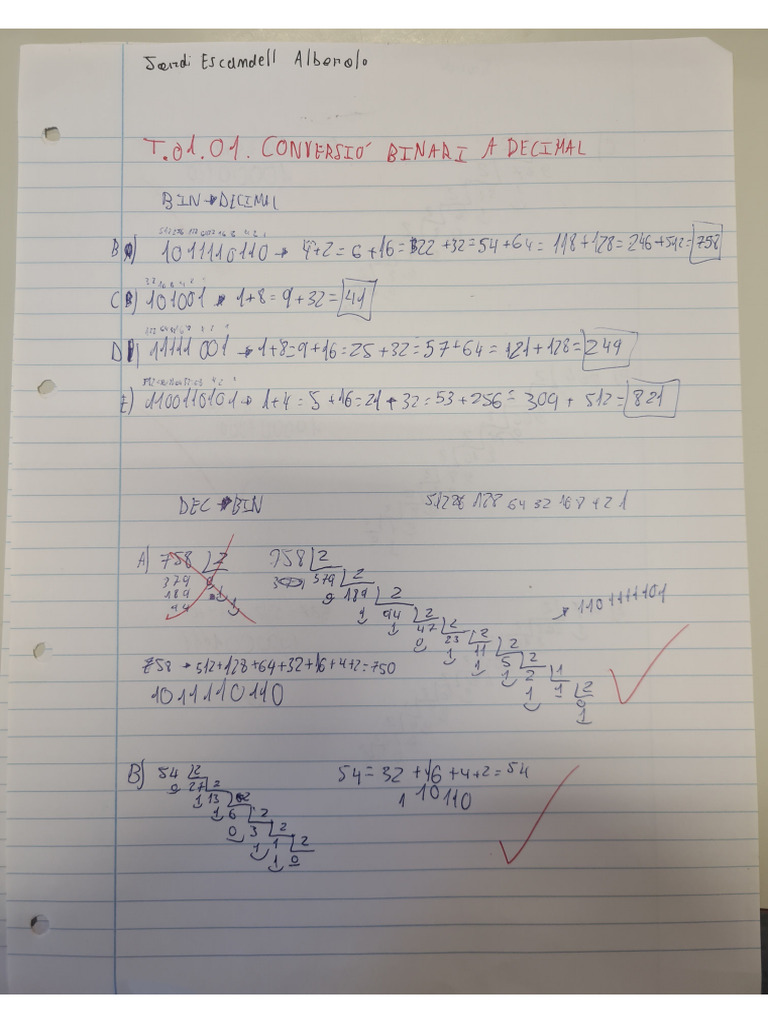 Jordi Escandell Alberola
T.01.01. CONVERSIÓ BINARI A DECIMAL
BIN → DECIMAL
B) 1011110110 → 4+2 = 6 +16 = 22 +32 = 54 + 64 = 118 +128 = 246 +512 = 758
C) 101001 → 1+8 = 9 +32 = 41
D) 11111001 → 1+8 = 9 +16 = 25 +32 = 57 + 64 = 121 + 128 = 249
E) 1100110101 → 1+4 = 5 +16 = 21 + 32 = 53 + 256 = 309 + 512 = 821
DEC → BIN
512 256 128 64 32 16 8 4 2 1
A) 758 2
379 0
189 1
94 1
758 2
379 2
0 189 2
1 94 2
1 47 2
0 23 2
1 11 2
1 5 2
1 2 1
1 1 2
0
1
→ 1101111101
758 → 512+128+64+32+16+4+2=750
1011110110
B) 54 2
0 27 2
1 13 2
1 6 2
0 3 2
1 1 2
1 0
54 = 32 +16 +4+2 = 54
1 10 110